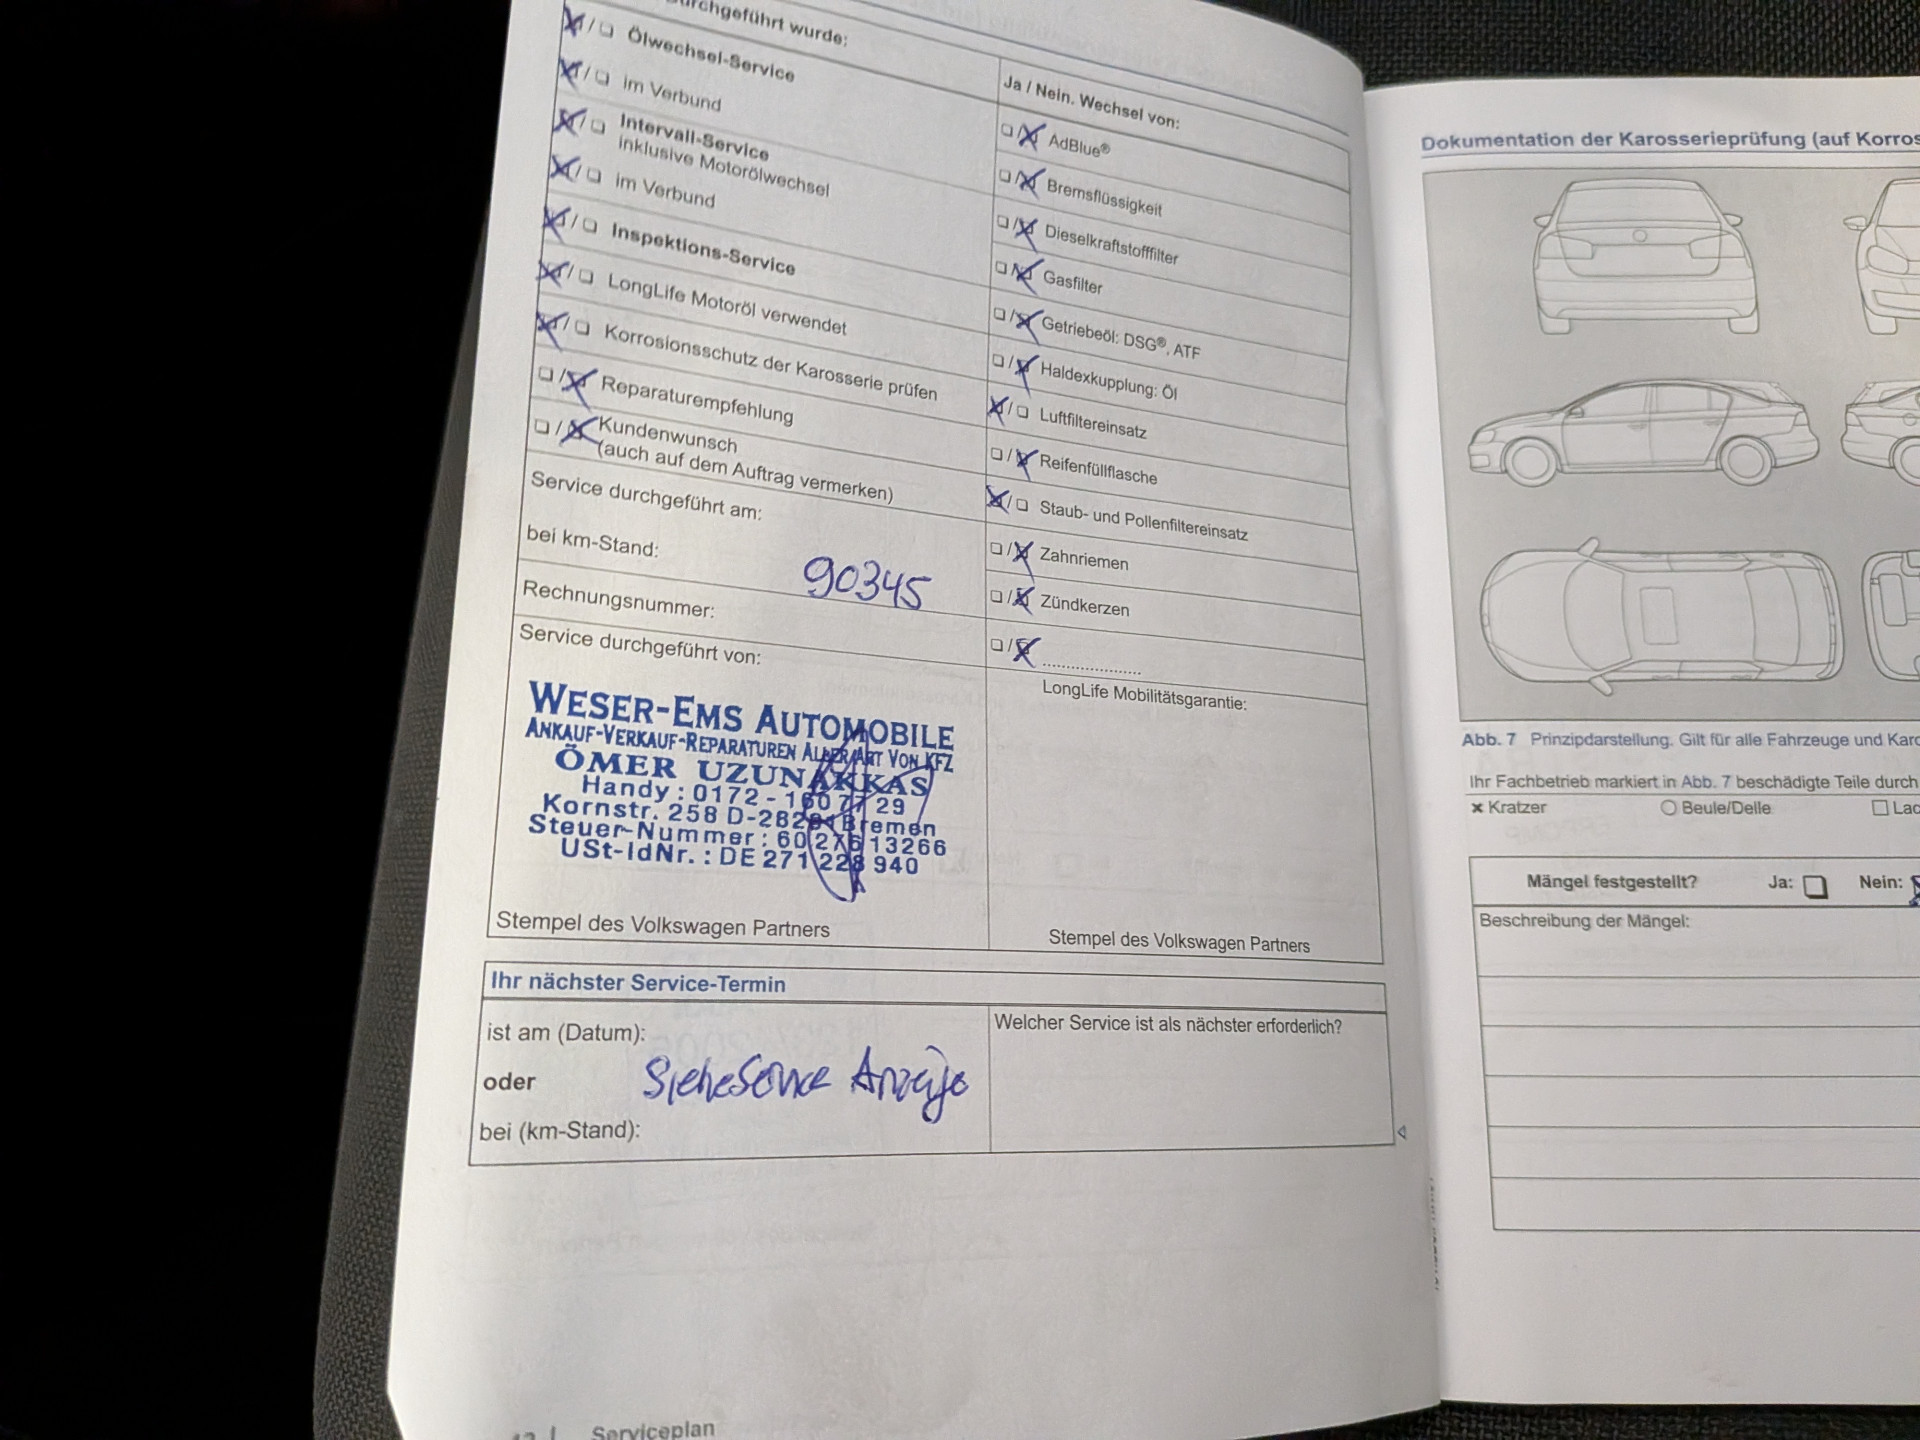 urchgeführt wurde:
☒/☐ Ölwechsel-Service
☒/☐ im Verbund
☒/☐ Intervall-Service
inklusive Motorölwechsel
☒/☐ im Verbund
☒/☐ Inspektions-Service
☒/☐ LongLife Motoröl verwendet
☒/☐ Korrosionsschutz der Karosserie prüfen
☐/☒ Reparaturempfehlung
☐/☒ Kundenwunsch
(auch auf dem Auftrag vermerken)
Service durchgeführt am:
bei km-Stand:
90345
Rechnungsnummer:
Service durchgeführt von:
WESER-EMS AUTOMOBILE
ANKAUF-VERKAUF-REPARATUREN ALLER ART VON KFZ
ÖMER UZUNAKKAS
Handy: 0172 - 160 77 29
Kornstr. 258 D-28201 Bremen
Steuer-Nummer: 60 276 13266
USt-IdNr.: DE 271 228 940
Stempel des Volkswagen Partners
Ja / Nein. Wechsel von:
☐/☒ AdBlue®
☐/☒ Bremsflüssigkeit
☐/☒ Dieselkraftstofffilter
☐/☒ Gasfilter
☐/☒ Getriebeöl: DSG®, ATF
☐/☒ Haldexkupplung: Öl
☒/☐ Luftfiltereinsatz
☐/☒ Reifenfüllflasche
☒/☐ Staub- und Pollenfiltereinsatz
☐/☒ Zahnriemen
☐/☒ Zündkerzen
☐/☒ ....................
LongLife Mobilitätsgarantie:
Stempel des Volkswagen Partners
Ihr nächster Service-Termin
ist am (Datum):
oder
Siehe Service Anzeige
bei (km-Stand):
Welcher Service ist als nächster erforderlich?
Serviceplan
Dokumentation der Karosserieprüfung (auf Korros
Abb. 7 Prinzipdarstellung. Gilt für alle Fahrzeuge und Karo
Ihr Fachbetrieb markiert in Abb. 7 beschädigte Teile durch
× Kratzer ○ Beule/Delle ☐ Lac
Mängel festgestellt? Ja: ☐ Nein: ☒
Beschreibung der Mängel: